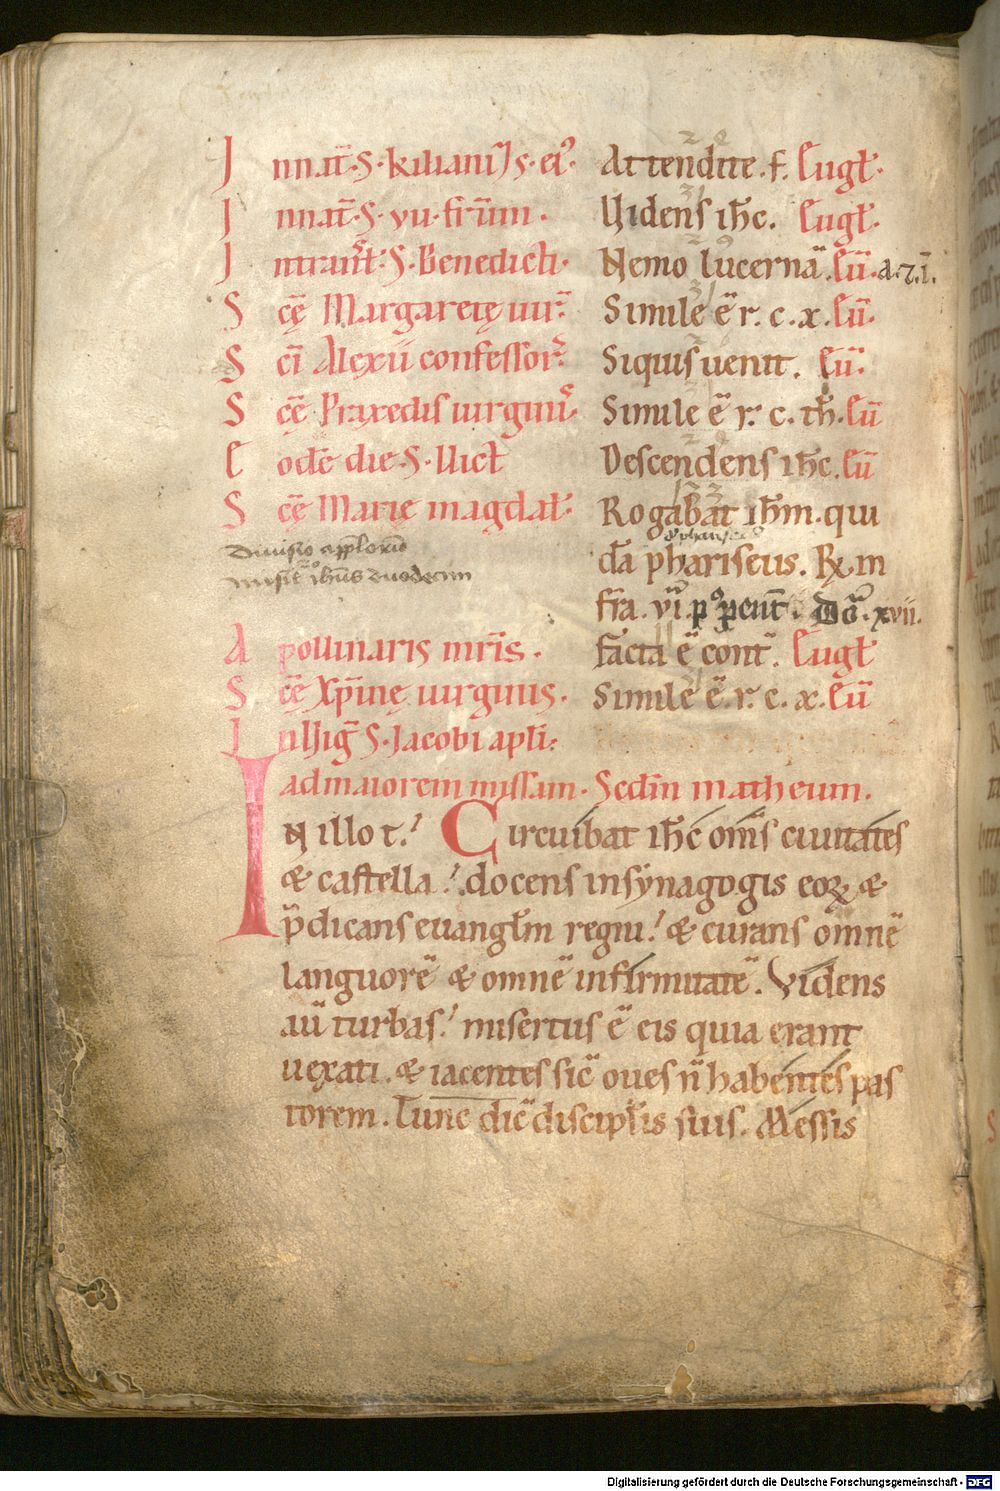 In nat̄. S. kiliani ⁊ s. ei⁹. Attendite. f. Lugł.
In nat̄. S. vii. fr̄um. Uidens ih̄c. Lugł.
In transl̄. S. Benedicti. Nemo lucernā. Lū. a. ⁊. ī.
Scę Margaretę uir̄. Simile ē r. c. x. Lū.
Sci Alexii confessor̄. Siquis uenit. Lū.
Scę Praxedis uirginis. Simile ē r. c. th̄. Lū
Eodē die. S. Vict̄ Descendens ih̄c. Lū
Scę Marię magdał. Rogabat ih̄m. qui
Diuisio appl̄orū
misit ih̄us duodecim
dā phariseus. R̨. in
fr̄a. vi. p⁹ pent̄. Dō. xvii.
Apollinaris mr̄is. facta ē cont̄. Lugł
Scę Xp̄inę uirginis. Simile ē. r. c. x. Lū
In uiḡ S. Jacobi apl̄i.
ad maiorem missam. Scd̄m matheum.
IN illo t. Circuibat ih̄c om̄s ciuitates
& castella. docens in synagogis eoꝝ &
p̄dicans euangl̄m regni. & curans omnē
languorē & omnē infirmitatē. Videns
aū turbas. misertus ē eis quia erant
uexati. & iacentes sic̄ oues n̄ habentes pas
torem. Tunc dic̄ discipl̄is suis. Messis
Digitalisierung gefördert durch die Deutsche Forschungsgemeinschaft - DFG